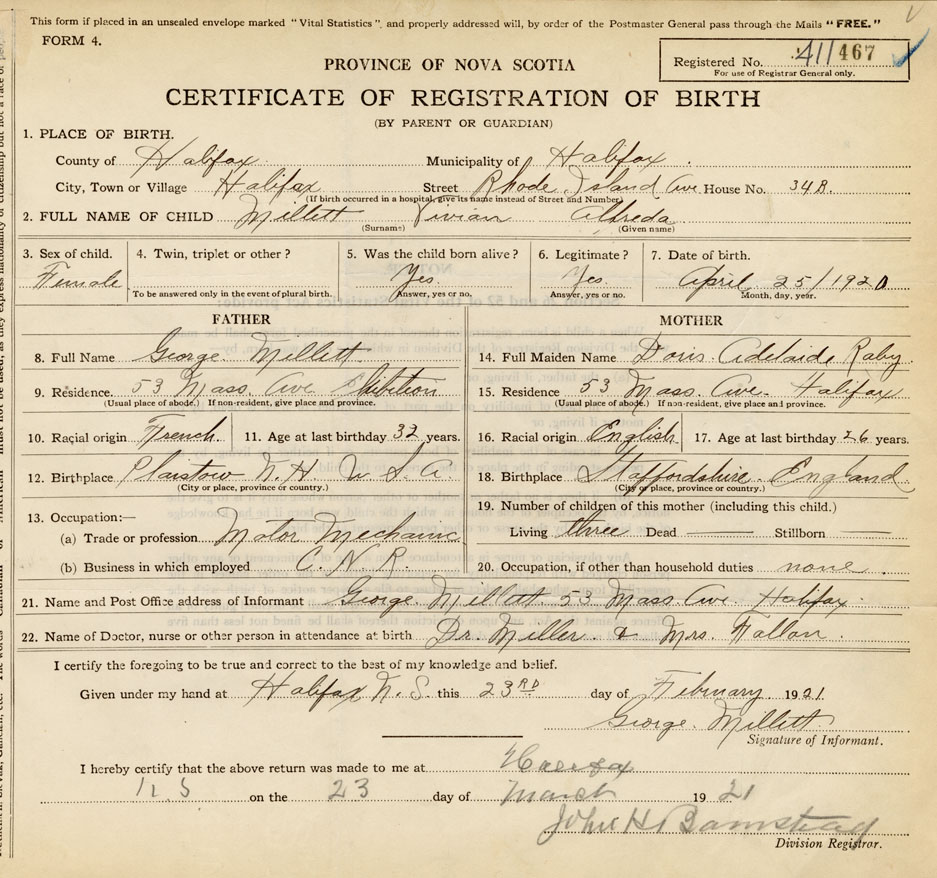 This form if placed in an unsealed envelope marked "Vital Statistics", and properly addressed will, by order of the Postmaster General pass through the Mails "FREE."
FORM 4.
Registered No. 411467
For use of Registrar General only.
PROVINCE OF NOVA SCOTIA
CERTIFICATE OF REGISTRATION OF BIRTH
(BY PARENT OR GUARDIAN)
1. PLACE OF BIRTH.
County of Halifax Municipality of Halifax
City, Town or Village Halifax Street Rhode Island Ave. House No. 34B.
(If birth occurred in a hospital, give its name instead of Street and Number)
2. FULL NAME OF CHILD Millett Vivian Alfreda
(Surname) (Given name)
3. Sex of child. 4. Twin, triplet or other? 5. Was the child born alive? 6. Legitimate? 7. Date of birth.
Female Yes. Yes. April 25/1920
To be answered only in the event of plural birth. Answer, yes or no. Answer, yes or no. Month, day, year.
FATHER
8. Full Name George Millett
9. Residence. 53 Mass. Ave
(Usual place of abode.) If non-resident, give place and province.
10. Racial origin French. 11. Age at last birthday 32 years.
12. Birthplace Plaistow N. H. U S. A.
(City or place, province or country.)
13. Occupation:—
(a) Trade or profession Motor Mechanic
(b) Business in which employed C. N. R.
MOTHER
14. Full Maiden Name Doris Adelaide Raby
15. Residence 53 Mass Ave. Halifax
(Usual place of abode.) If non-resident, give place and province.
16. Racial origin English 17. Age at last birthday 26 years.
18. Birthplace Staffordshire. England
(City or place, province or country.)
19. Number of children of this mother (including this child.)
Living three Dead — Stillborn —
20. Occupation, if other than household duties none.
21. Name and Post Office address of Informant George Millett 53 Mass. Ave. Halifax.
22. Name of Doctor, nurse or other person in attendance at birth Dr. Miller & Mrs. Fallon.
I certify the foregoing to be true and correct to the best of my knowledge and belief.
Given under my hand at Halifax N. S. this 23RD day of February 1921.
George. Millett
Signature of Informant.
I hereby certify that the above return was made to me at Halifax
N.S on the 23 day of March 1921
John H Barnstead
Division Registrar.